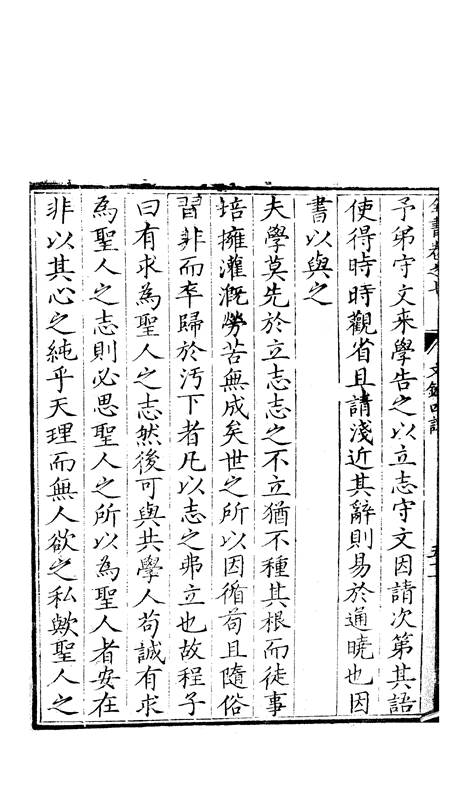 全書卷之七 文錄四說
予弟守文来學告之以立志守文因請次第其語
使得時時觀省且請淺近其辭則易於通曉也因
書以與之
夫學莫先於立志志之不立猶不種其根而徒事
培擁灌漑勞苦無成矣世之所以因循苟且隨俗
習非而卒歸於汚下者凡以志之弗立也故程子
曰有求為聖人之志然後可與共學人苟誠有求
為聖人之志則必思聖人之所以為聖人者安在
非以其心之純乎天理而無人欲之私歟聖人之